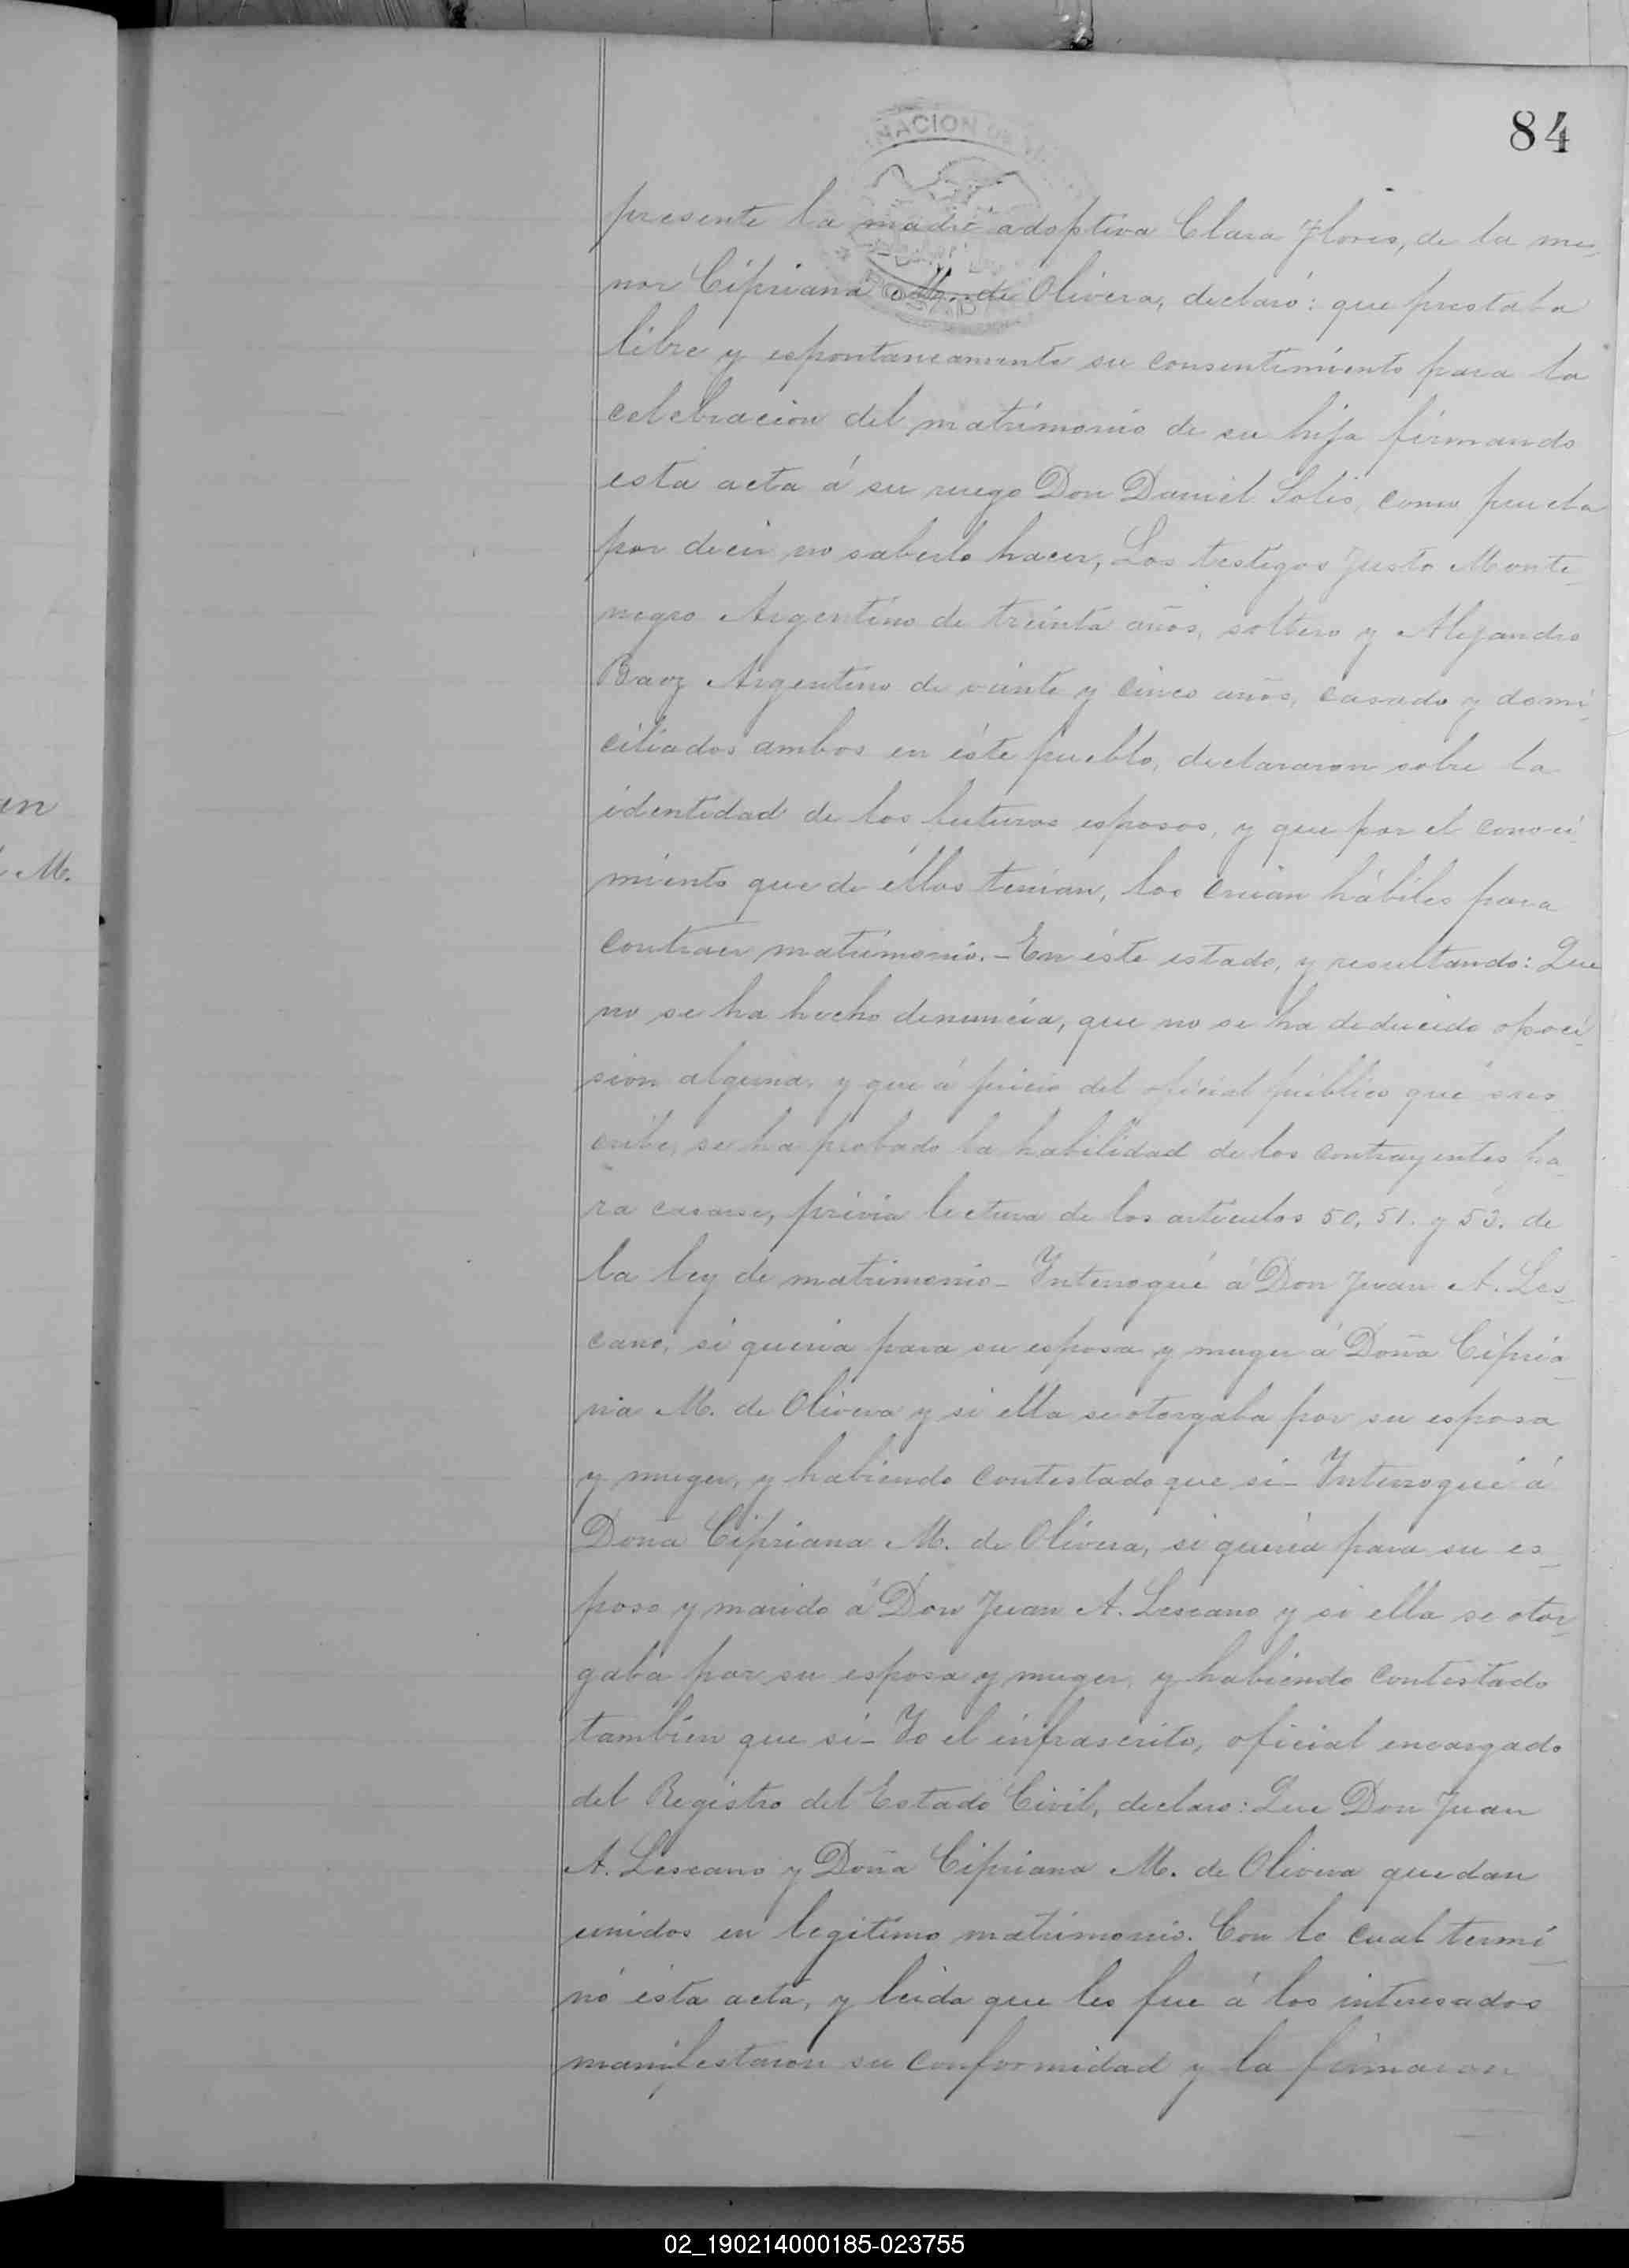 84
NACION
presente la madre adoptiva Clara Flores, de la me-
nor Cipriana M. de Olivera, declaró: que prestaba
libre y espontaneamente su consentimiento para la
celebracion del matrimonio de su hija firmando
esta acta á su ruego Don Daniel Solis, como
por decir no saberlo hacer, Los testigos Justo Monte-
negro Argentino de treinta años, soltero y Alejandro
Baez Argentino de veinte y cinco años, casado y domi-
ciliados ambos en éste pueblo, declararon sobre la
identidad de los futuros esposos, y que por el conoci-
miento que de éllos tenian, los creian hábiles para
contraer matrimonio.- En éste estado, y resultando: Que
no se ha hecho denuncia, que no se ha deducido opoci-
sion alguna, y que á juicio del oficial público que sus-
cribe, se ha probado la habilidad de los contrayentes pa-
ra casarse, prévia lectura de los artículos 50, 51. y 53. de
la ley de matrimonio- Interrogué á Don Juan A. Les-
cano, si queria para su esposa y muger á Doña Cipria-
na M. de Olivera y si ella se otorgaba por su esposa
y muger, y habiendo contestado que si- Interrogué á
Doña Cipriana M. de Olivera, si queria para su es-
poso y marido á Don Juan A. Lescano y si ella se otor-
gaba por su esposa y muger, y habiendo contestado
tambien que si- Yo el infrascrito, oficial encargado
del Registro del Estado Civil, declaro: Que Don Juan
A. Lescano y Doña Cipriana M. de Olivera quedan
unidos en legitimo matrimonio. Con lo cual termi-
nó ésta acta, y leida que les fue á los interesados
manifestaron su conformidad y la firmaron
an
M.
02_190214000185-023755